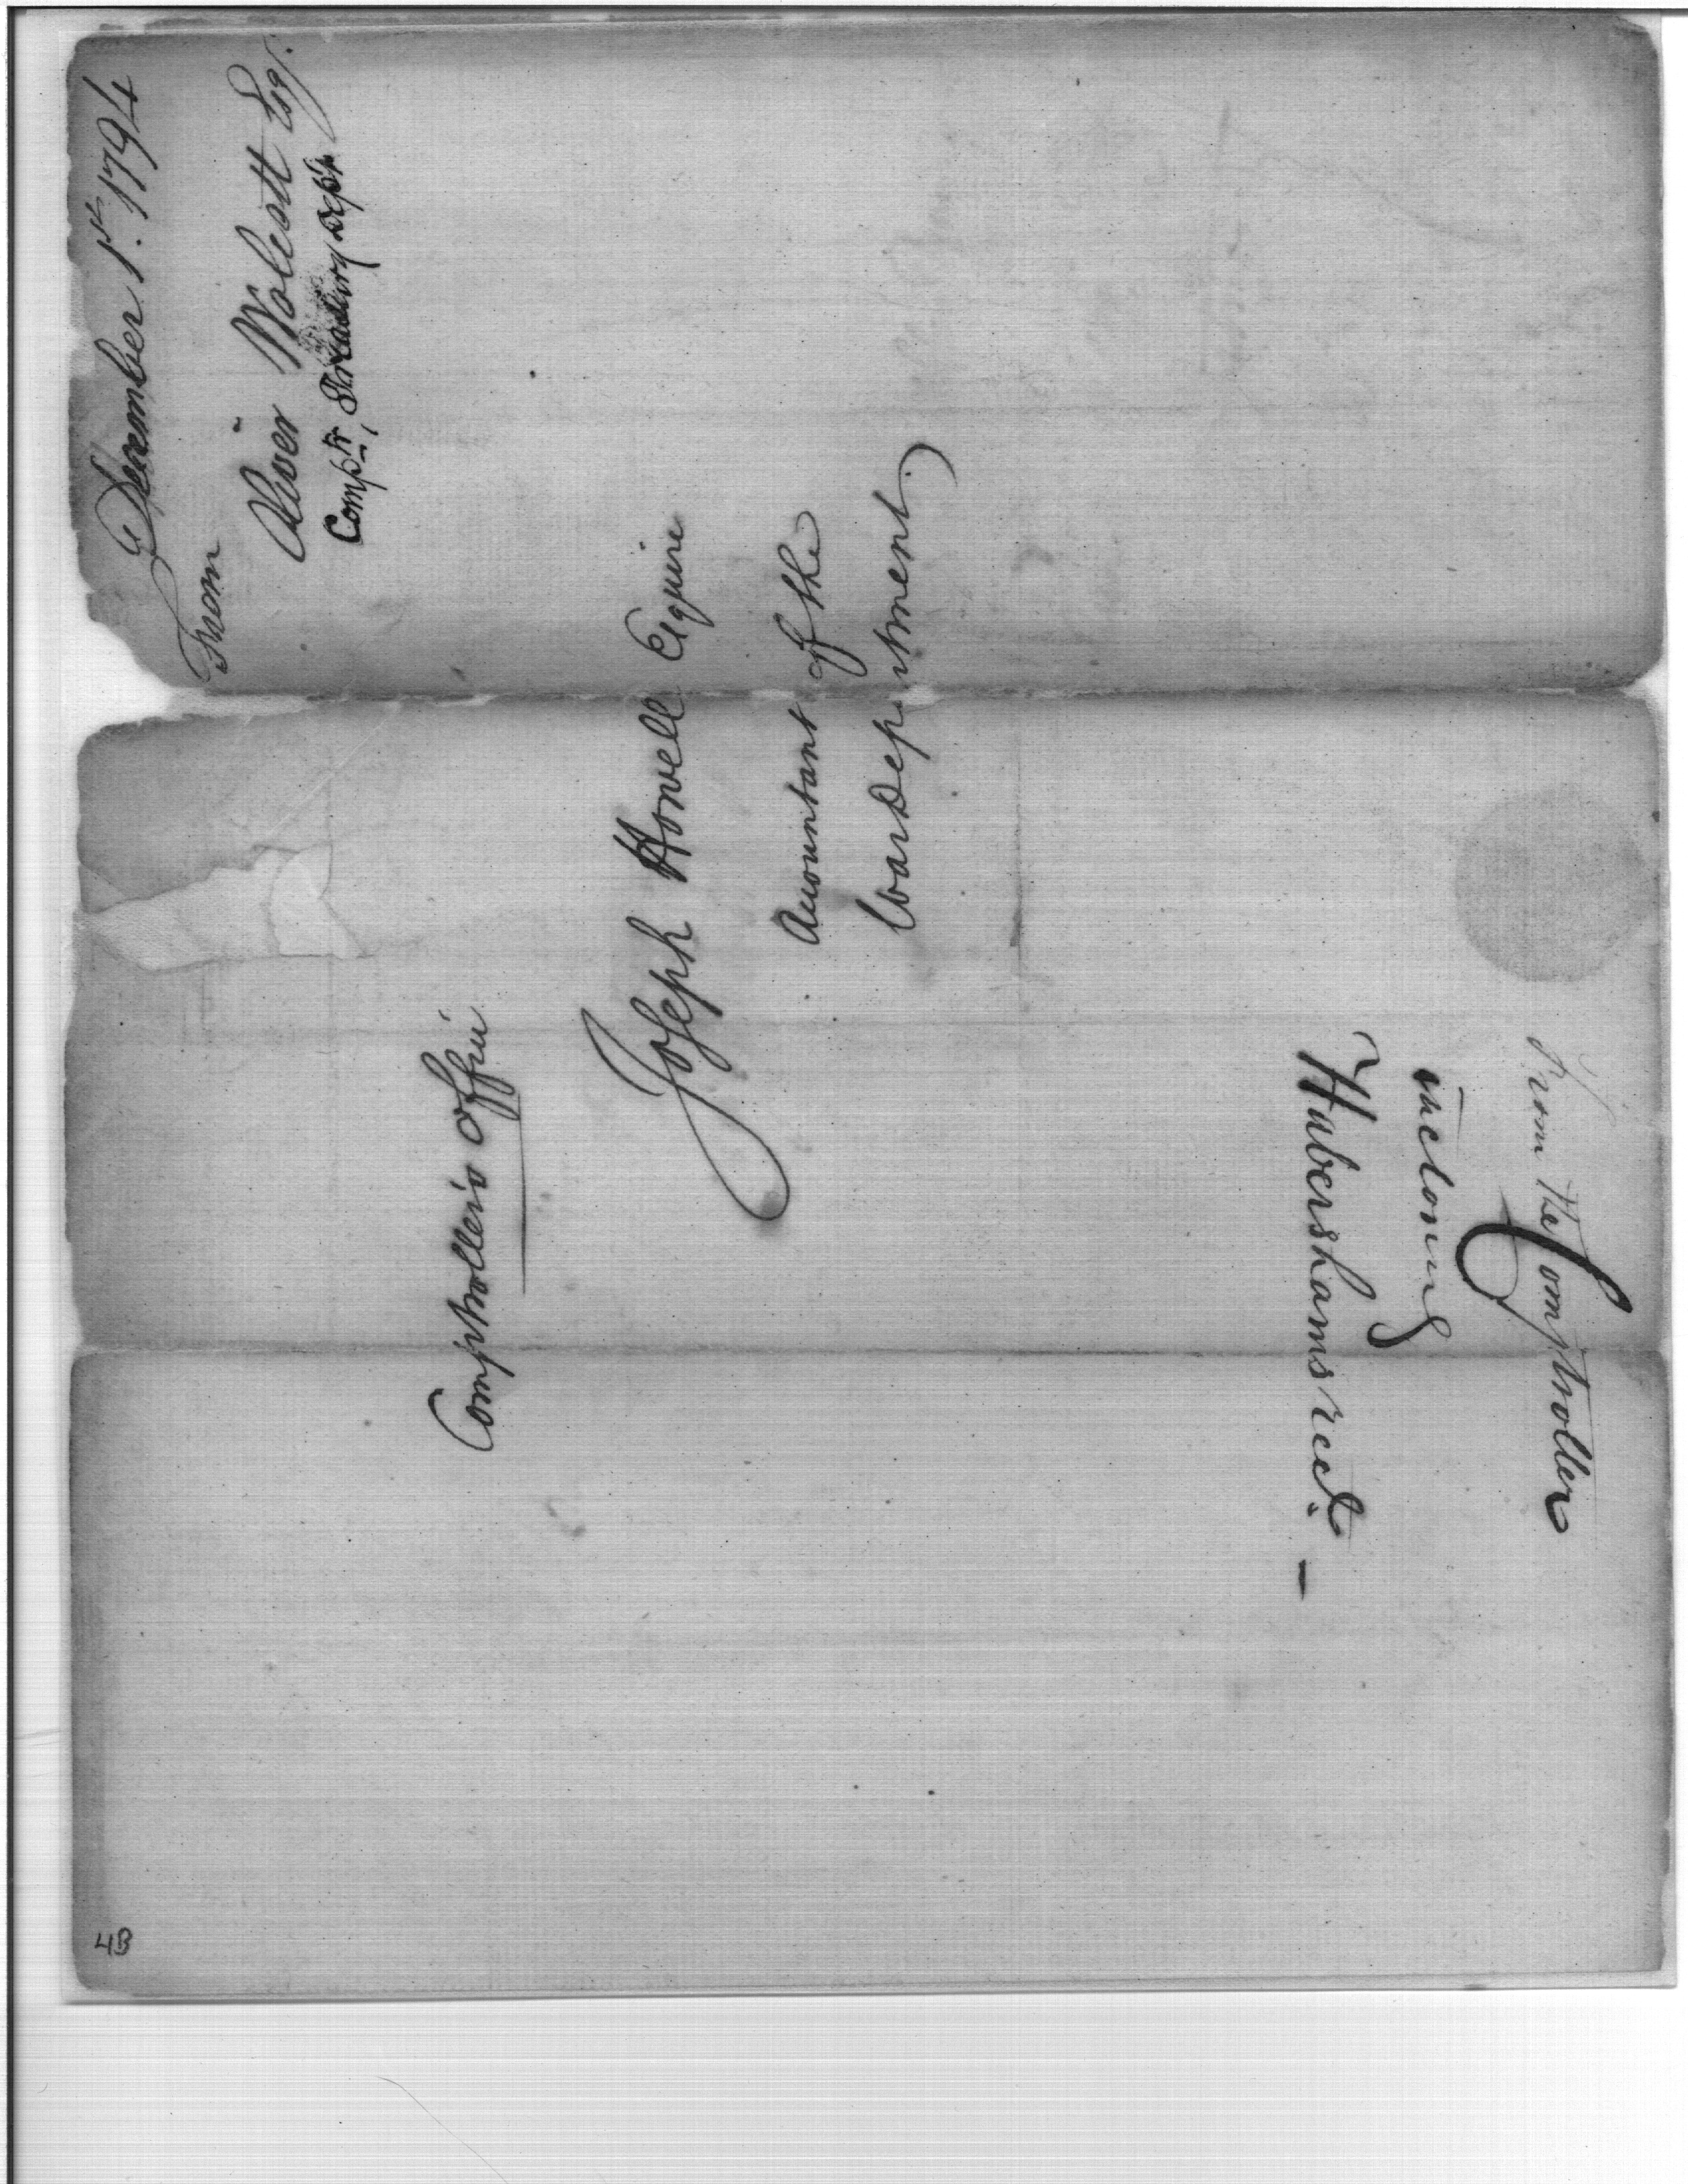 December 1st. 1794
From
Oliver Wolcott Esqr.
Comptr, Treasury Dept.
Comptrollers Office
Joseph Howell Esquire
Accountant of the
War Department
From the Comptroller
inclosing
Habershams rect. —
43